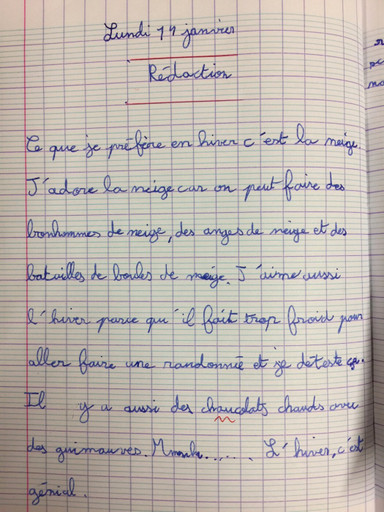 Lundi 11 janvier
Rédaction
Ce que je préfère en hiver c'est la neige.
J'adore la neige car on peut faire des
bonhommes de neige, des anges de neige et des
batailles de boules de neige. J'aime aussi
l'hiver parce qu'il fait trop froid pour
aller faire une randonnié et je déteste ça.
Il y a aussi des chaucolats chauds avec
des guimauves. L'hiver, c'est
génial.